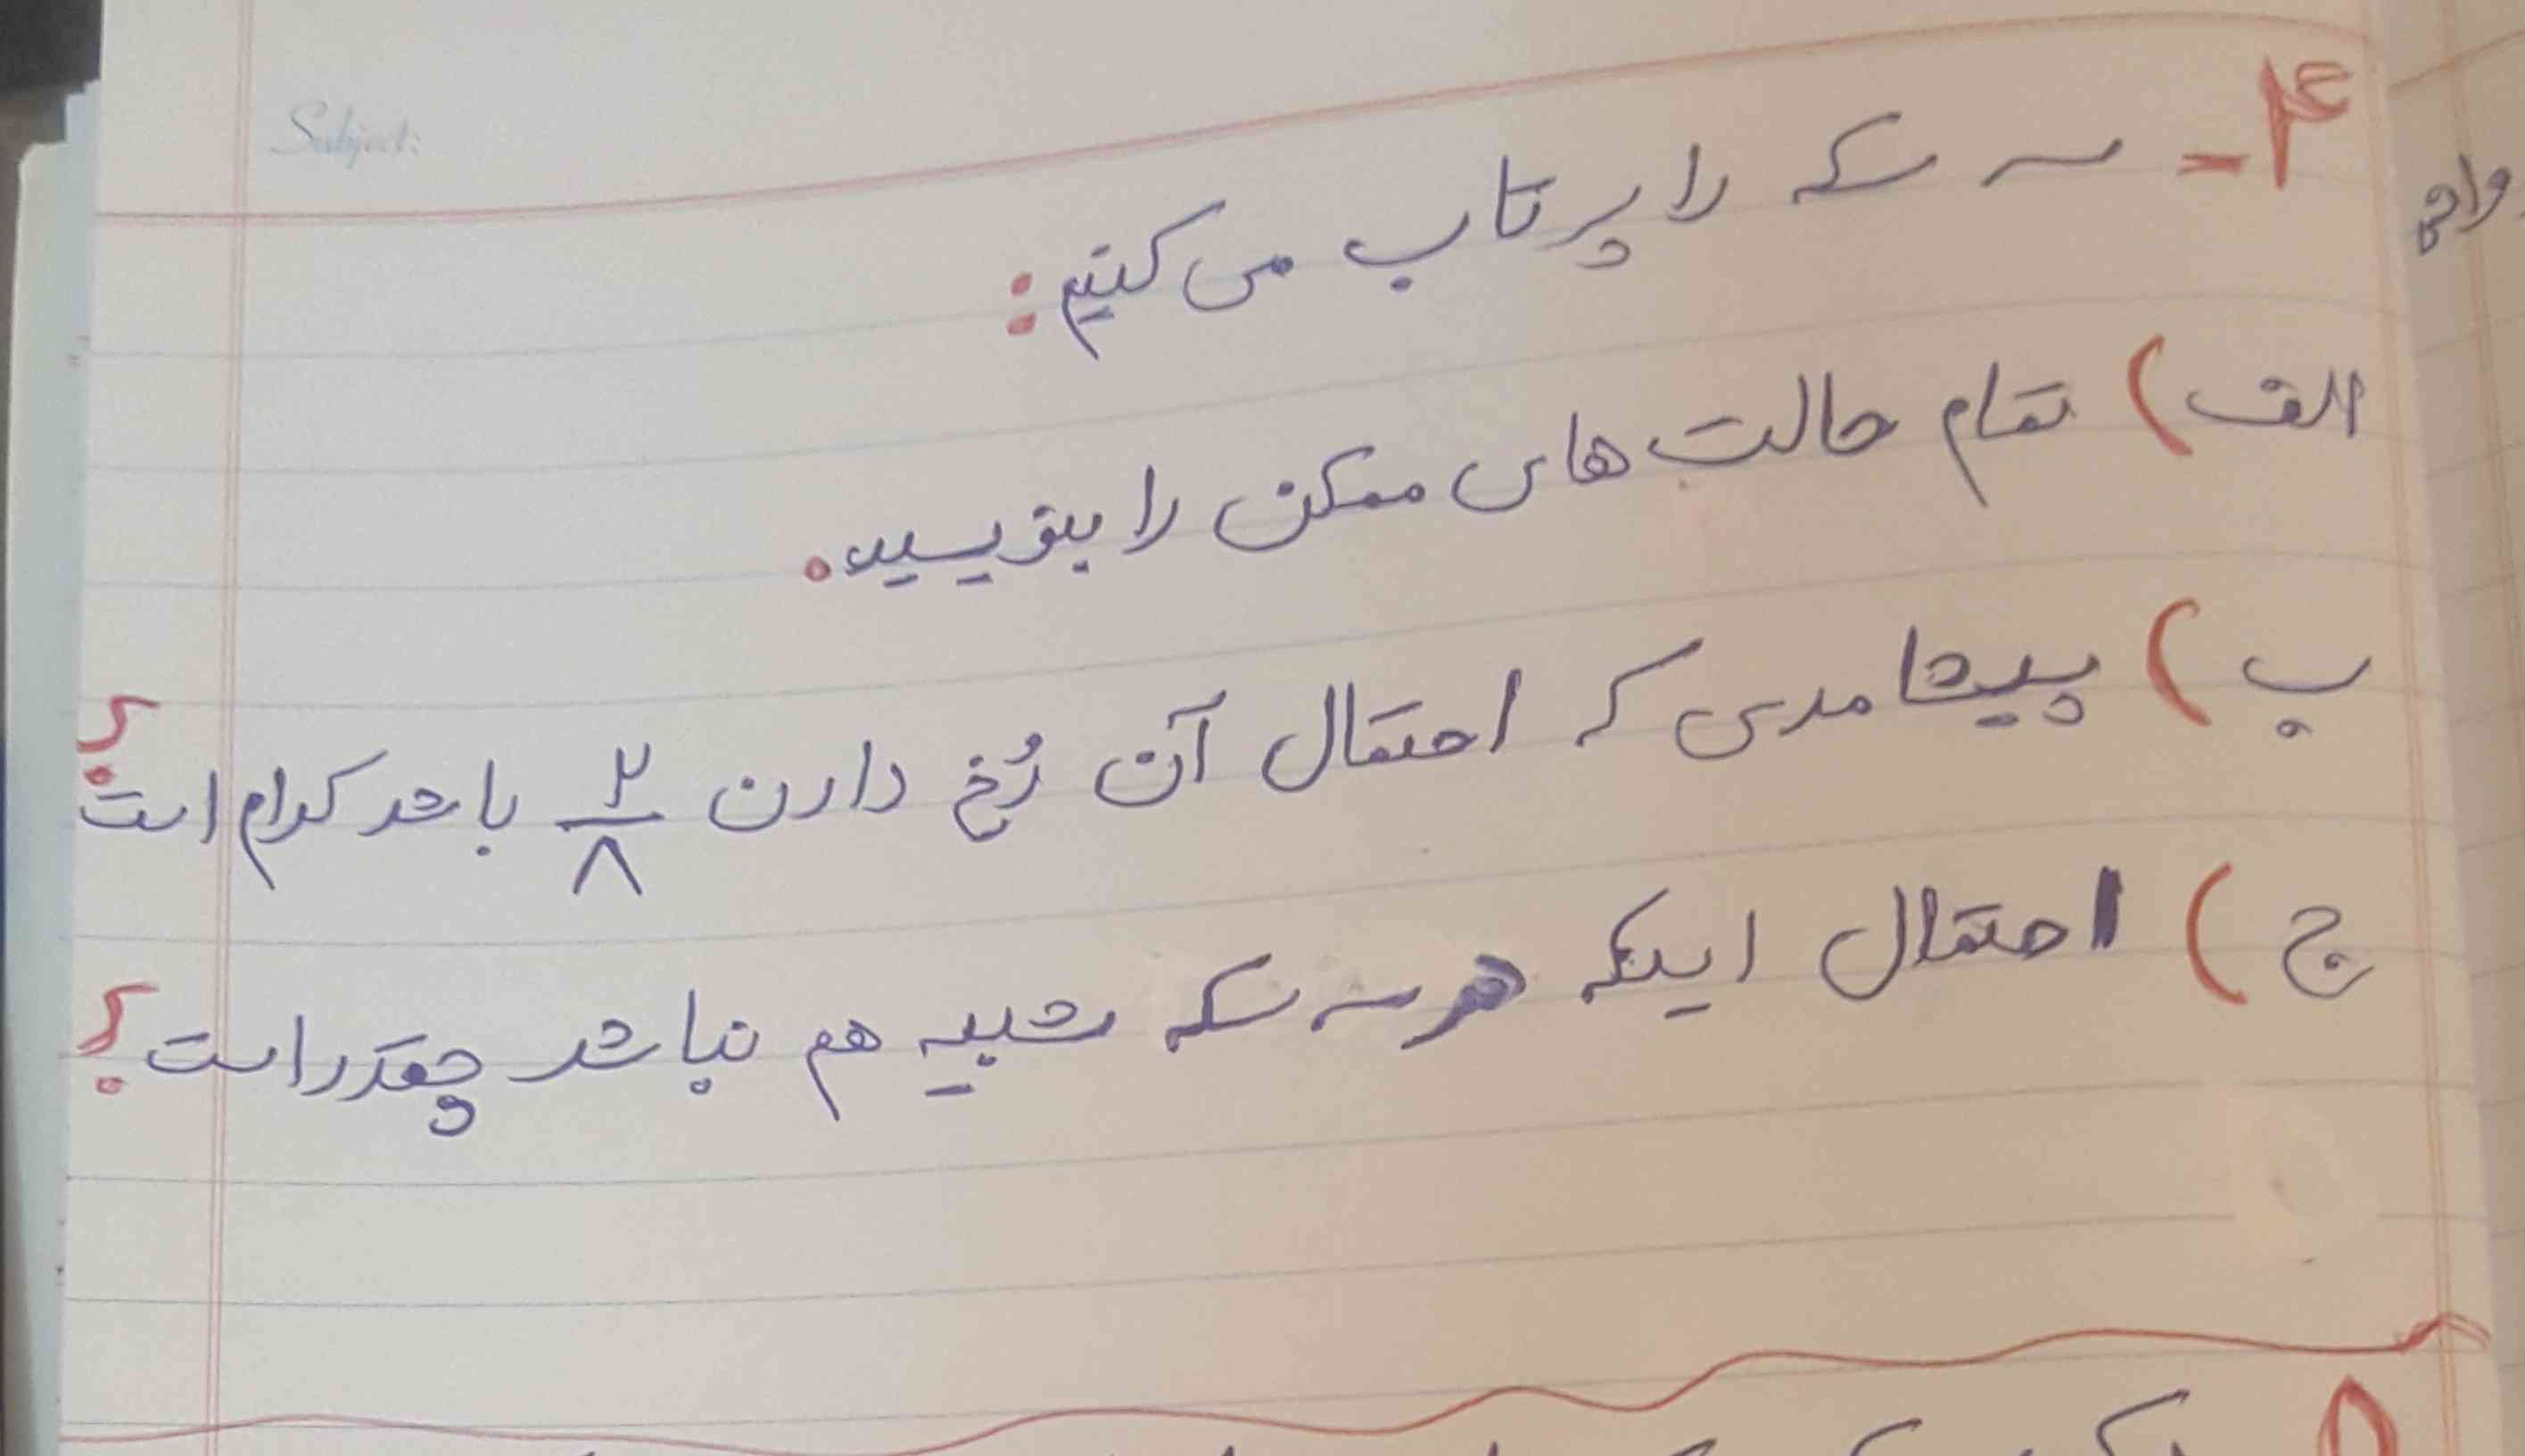 Subject:
۴- سه سکه را پرتاب می کنیم:
الف) تمام حالت های ممکن را بنویسید.
ب) پیشامدی که احتمال آن رُخ دادن ۲/۸ باشد کدام است؟
ج) احتمال اینکه هر سه سکه شبیه هم نباشد چقدر است؟